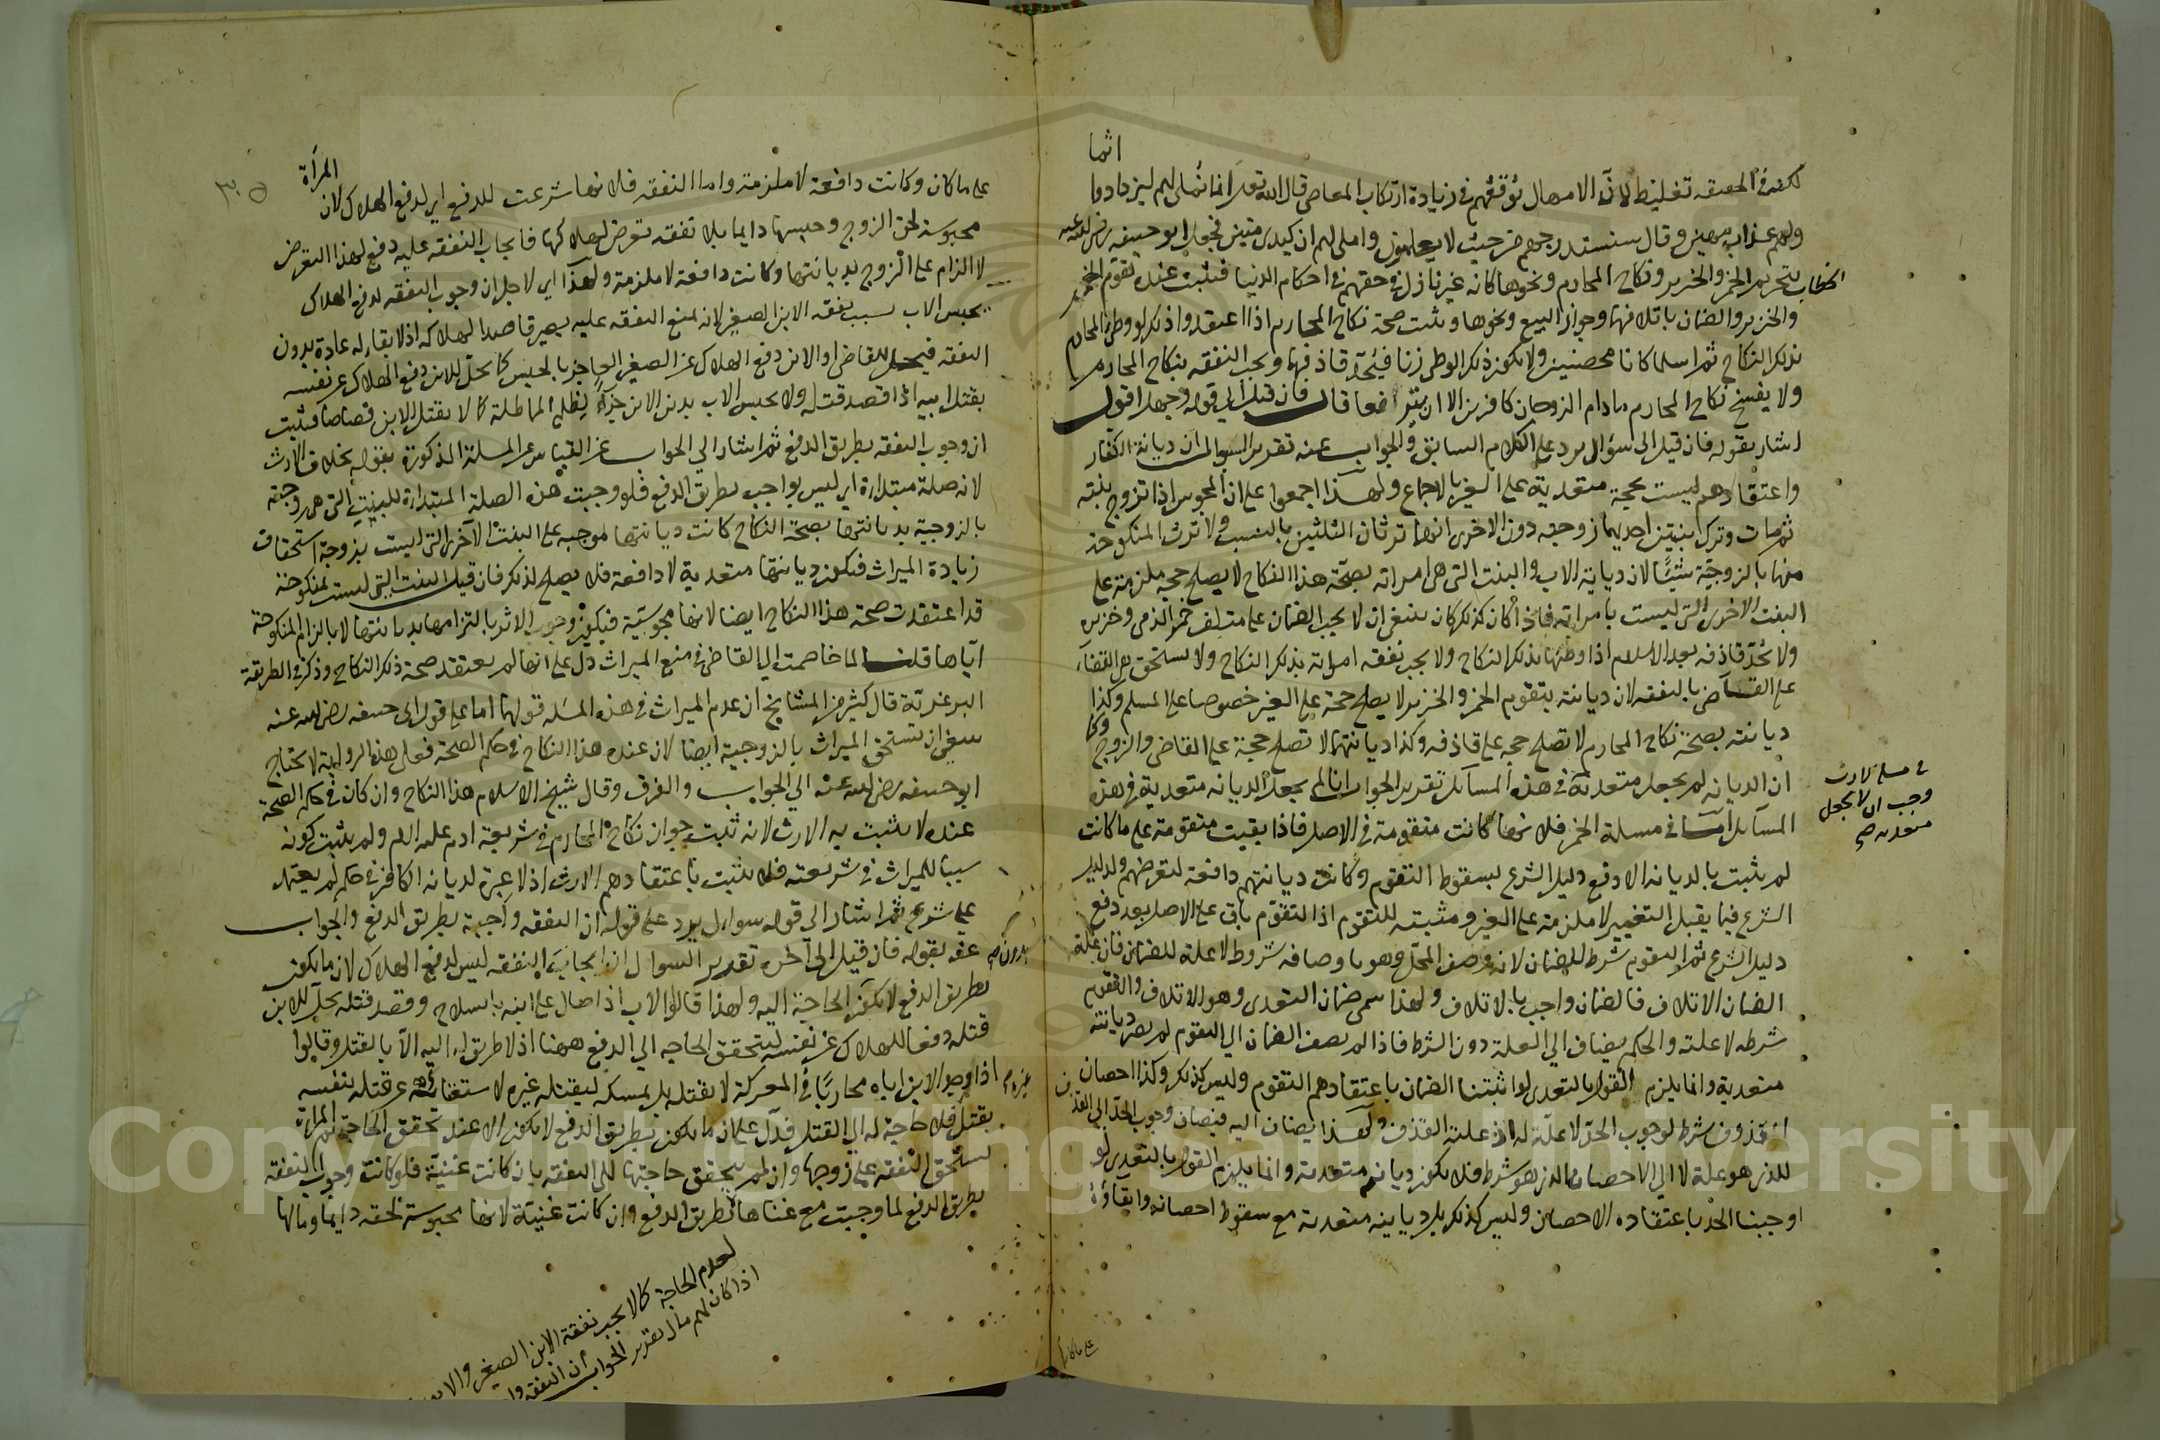 اثما
لكنه في الحقيقه تغليظ لانّ الامهال يوقعهم في زيادة ارتكاب المعاصي قال الله تعالى انما نملي لهم ليزدادوا
ولهم عذاب مهين وقال سنستدرجهم من حيث لا يعلمون واملي لهم ان كيدي متين فجعل ابو حنيفه رضي الله عنه
الخطاب بتحريم الخمر والخنزير ونكاح المحارم ونحوها كانه غير نازل في حقهم في احكام الدنيا فيثبت عنده تقوم الخمر
والخنزير والضمان باتلافها وجواز البيع ونحوها ويثبت صحة نكاح المحارم اذا اعتقدوا ذلك لو وطئ المحارم
بذلك النكاح ثم اسلما كانا محصنين ولا يكون ذلك الوطئ زنا فيُحدّ قاذفها ويجب النفقه بنكاح المحارم
ولا يفسخ نكاح المحارم مادام الزوجان كافرين الا ان يترافعا قال فان قيل الى قوله وجهل اقول
اشار بقوله فان قيل الى سؤال يرد على الكلام السابق والجواب عنه تقدير السوال ان ديانة الكفار
واعتقادهم ليست بحجة متعدية على الغير بالاجماع ولهذا اجمعوا على ان المجوسي اذا تزوج بنته
ثم مات وترك بنتين احديهما زوجته دون الاخرى انهما ترثان الثلثين بالنسب ولا ترث المنكوحة
منهما بالزوجيّة شيئا لان ديانة الاب والبنت التي هي امراته بصحّة هذا النكاح لا يصلح حجة ملزمة على
البنت الاخرى التي ليست بامراته فاذا كان كذلك كان ينبغي ان لا يجب الضمان على متلف خمر الذمي وخنزيره
ولا يُحدّ قاذفه بعد الاسلام اذا وطئها بذلك النكاح ولا يجب نفقه امراته بذلك النكاح ولا يستحق به القضاء
على القاضي بالنفقه لان ديانته بتقوم الخمر والخنزير لا يصلح حجة على الغير خصوصا على المسلم وكذا
ديانته بصحة نكاح المحارم لا تصلح حجه على قاذفه وكذا ديانتهما لا تصلح حجة على القاضي والزوج وكا
ان الديانه لم يجعل متعدية في هذه المسائل تقدير الجواب انا لم يجعل الديانه متعدية في هذه
في مسلة الارث
وجب ان لا يجعل
متعديه صح
المسائل امّا في مسلة الخمر فلانها كانت متقومة في الاصل فاذا بقيت متقومة على ما كانت
لم يثبت بالديانه الا دفع دليل الشرع لسقوط التقوم وكانت ديانتهم دافعة لتعرضهم ولدليل
الشرع فيما يقبل التغيير لا ملزمة على الغير ومثبته للتقوم اذ التقوّم باق على الاصل بعد دفع
دليل الشرع ثم التقوم شرط للضمان لانه وصف المحل وهو باوصافه شروط لا علة للضمان فان علة
الضمان الاتلاف فالضمان واجب بالاتلاف ولهذا سمي ضمان التعدي وهو الاتلاف والتقوم
شرطه لا علته والحكم يضاف الى العلة دون الشرط فاذا لم يضف الضمان الى التقوم لم يصر ديانته
متعدية وانما يلزم القول بالتعدي لو اثبتنا الضمان باعتقادهم التقوم وليس كذلك وكذا احصان
المقذوف شرط لوجوب الحدّ لا علّة له اذ علته القذف ولهذا يضاف اليه فيضاف وجوب الحدّ الى القذف
الذي هو علة لا الى الاحصان الذي هو شرط فلا يكون ديانته متعدية وانما يلزم القول بالتعدي لو
اوجبنا الحدّ باعتقاده الاحصان وليس كذلك بل ديانته متعدية مع سقوط احصانه وابقاؤه
على ما كان
المرأة
على ما كان وكانت دافعة لا ملزمة واما النفقه فلانها شرعت للدفع اي لدفع الهلاك لان
محبوسة لحق الزوج وحبسها دايما بلا نفقه تعرض لهلاكها فايجاب النفقه عليه دفع لهذا التعرض
لا الزام على الزوج بديانتها وكانت دافعة لا ملزمة ولهذا اي لاجل ان وجوب النفقه لدفع الهلاك
يحبس الاب بسبب نفقه الابن الصغير لانه لمنع النفقه عليه يصير قاصدا لهلاكه اذ لا بقاء له عادة بدون
النفقه فيحل للقاضي او الابن دفع الهلاك عن الصغير العاجز بالحبس كما يحلّ للابن دفع الهلاك عن نفسه
بقتل ابيه اذا قصد قتله ولا يحبس الاب بدين الابن جزاءً لظلم المماطلة كما لا يقتل الابن قصاصا فيثبت
ان وجوب النفقه بطريق الدفع ثم اشار الى الجواب عن القياس على المسلة المذكورة بقوله بخلاف الارث
لانه صلة مبتداة اي ليس بواجب بطريق الدفع فلو وجبت هذه الصلة المبتداة للبنت التي هي زوجته
بالزوجية بديانتهما بصحّة النكاح كانت ديانتها موجبه على البنت الاخرى التي ليست بزوجة استحقاق
زيادة الميراث فيكون ديانتها متعدية لا دافعة فلا يصلح لذلك فان قيل البنت التي ليست بمنكوحة
قد اعتقدت صحة هذا النكاح ايضا لانها مجوسيّة فيكون وجوب الارث بالتزامها بديانتها لا بالزام المنكوحة
اياها قلنا لما خاصمت الى القاضي في منع الميراث دلّ على انها لم يعتقد صحة ذلك النكاح وذكر في الطريقة
البرغرية قال كثير من المشايخ ان عدم الميراث في هذه المسله قولهما اما على قول ابي حنيفه رضي الله عنه
ينبغي ان تستحق الميراث بالزوجية ايضا لان عنده هذا النكاح في حكم الصحة فعلى هذه الرواية لا يحتاج
ابو حنيفه رضي الله عنه الى الجواب والفرق وقال شيخ الاسلام هذا النكاح وان كان في حكم الصحة
عنده لا يثبت به الارث لانه ثبت جواز نكاح المحارم في شريعة ادم عليه السلام ولم يثبت كونه
سببا للميراث في شريعته فلا يثبت باعتقادهم الارث اذ لا عبرة لديانه الكافر في حكم لم يعتمد
على شرع ثم اشار الى قوله سوال يرد على قوله ان النفقه واجبة بطريق الدفع والجواب
عنه بقوله فان قيل الى آخره تقدير السوال ان ايجاب النفقه ليس لدفع الهلاك لان ما يكون
بطريق الدفع لا يكون الحاجة اليه ولهذا قالوا الاب اذا صال على ابنه بالسلاح وقصد قتله يحلّ للابن
بدون صح
قتله دفعا للهلاك عن نفسه ليتحقق الحاجه الى الدفع ههنا اذ لا طريق له اليه الا بالقتل وقالوا
اذا وجد الابن اباه محاربًا في المعركة لا يقتله بل يمسكه ليقتله غيره لاستغنائه عن قتله بنفسه
بقتل فلا حاجة له الى القتل فدلّ على ان ما يكون بطريق الدفع لا يكون الا عند تحقق الحاجة ثم المراة
تستحق النفقه على زوجها وان لم يتحقق حاجتها الى النفقه بان كانت غنيّة فلو كانت وجوب النفقه
بطريق الدفع لما وجبت مع غناها بطريق الدفع وان كانت غنيّة لانها محبوسة لحقه دايما ومالها
لعدم الحاجة كما لا يجب نفقة الابن الصغير والاب
اذا كان لهم مال تقدير الجواب ان النفقه